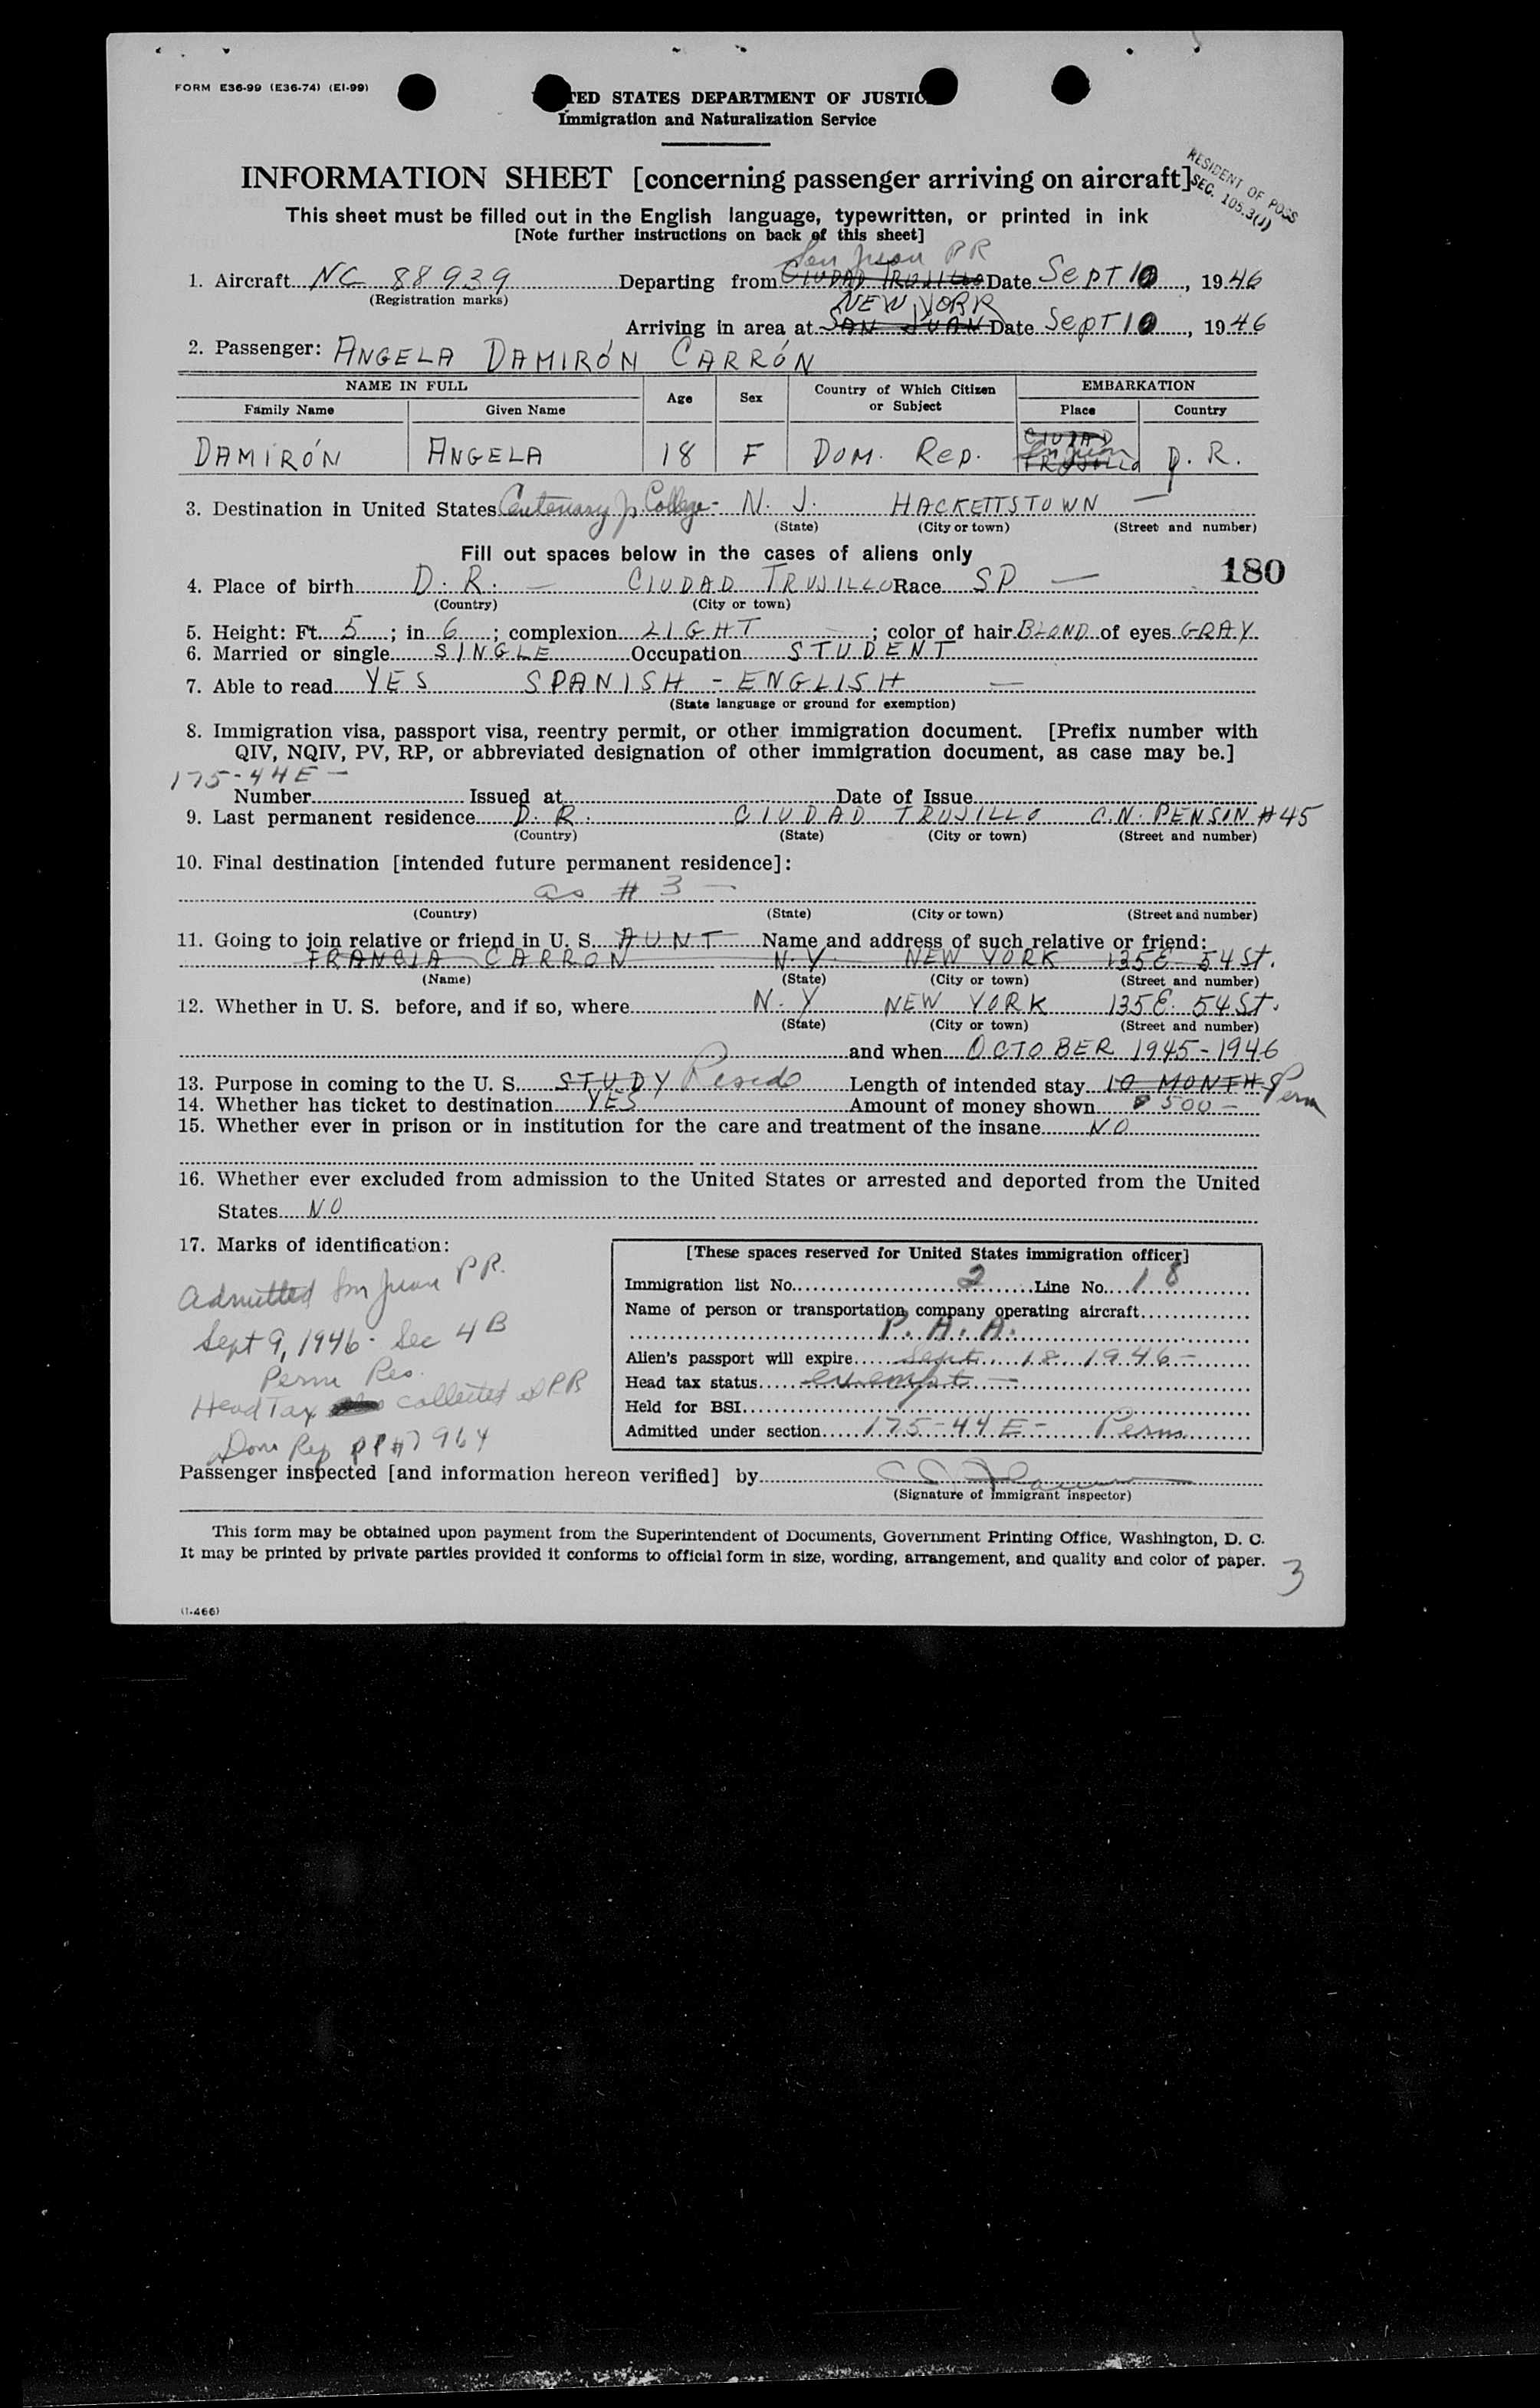 FORM E36-99 (E36-74) (EI-99)
TED STATES DEPARTMENT OF JUSTIC
Immigration and Naturalization Service
INFORMATION SHEET [concerning passenger arriving on aircraft]
RESIDENT OF POSS
SEC. 105.3(J)
This sheet must be filled out in the English language, typewritten, or printed in ink
[Note further instructions on back of this sheet]
San Juan PR
1. Aircraft NC 88939 Departing from CIUDAD TRUJILLO Date SEPT 10, 1946
(Registration marks)
NEW YORK
Arriving in area at SAN JUAN Date SEPT 10, 1946
2. Passenger: ANGELA DAMIRÓN CARRÓN
NAME IN FULL Age Sex Country of Which Citizen or Subject EMBARKATION
Family Name Given Name Place Country
DAMIRÓN ANGELA 18 F DOM. REP. CIUDAD TRUJILLO San Juan D. R.
3. Destination in United States Centenary Jr. College - N. J. HACKETTSTOWN —
(State) (City or town) (Street and number)
Fill out spaces below in the cases of aliens only
180
4. Place of birth D. R. — CIUDAD TRUJILLO Race SP —
(Country) (City or town)
5. Height: Ft. 5; in 6; complexion LIGHT; color of hair BLOND of eyes GRAY
6. Married or single SINGLE Occupation STUDENT
7. Able to read YES SPANISH - ENGLISH —
(State language or ground for exemption)
8. Immigration visa, passport visa, reentry permit, or other immigration document. [Prefix number with
QIV, NQIV, PV, RP, or abbreviated designation of other immigration document, as case may be.]
175-44E —
Number Issued at Date of Issue
9. Last permanent residence D. R. CIUDAD TRUJILLO C.N. PENSON #45
(Country) (State) (City or town) (Street and number)
10. Final destination [intended future permanent residence]:
as # 3 —
(Country) (State) (City or town) (Street and number)
11. Going to join relative or friend in U. S. AUNT Name and address of such relative or friend:
FRANCIA CARRON N.Y. NEW YORK 135E 54 St.
(Name) (State) (City or town) (Street and number)
12. Whether in U. S. before, and if so, where N. Y NEW YORK 135 E. 54 St.
(State) (City or town) (Street and number)
and when OCTOBER 1945-1946
13. Purpose in coming to the U. S. STUDY Reside Length of intended stay 10 MONTHS Perm
14. Whether has ticket to destination YES Amount of money shown $ 500 —
15. Whether ever in prison or in institution for the care and treatment of the insane NO
16. Whether ever excluded from admission to the United States or arrested and deported from the United
States NO
17. Marks of identification:
Admitted San Juan PR.
Sept 9, 1946 - Sec 4 B
Perm Res.
Head Tax collected SPR
Dom Rep PP# 7964
[These spaces reserved for United States immigration officer]
Immigration list No. 2 Line No. 18
Name of person or transportation company operating aircraft
P. A. A.
Alien's passport will expire Sept 18 1946 —
Head tax status exempt —
Held for BSI
Admitted under section 175-44E — Perm
Passenger inspected [and information hereon verified] by
(Signature of immigrant inspector)
This form may be obtained upon payment from the Superintendent of Documents, Government Printing Office, Washington, D. C.
It may be printed by private parties provided it conforms to official form in size, wording, arrangement, and quality and color of paper.
3
(I-466)